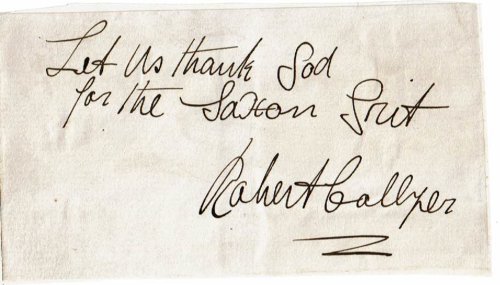 Let Us thank God
for the Saxon Grit
Robert Collyer